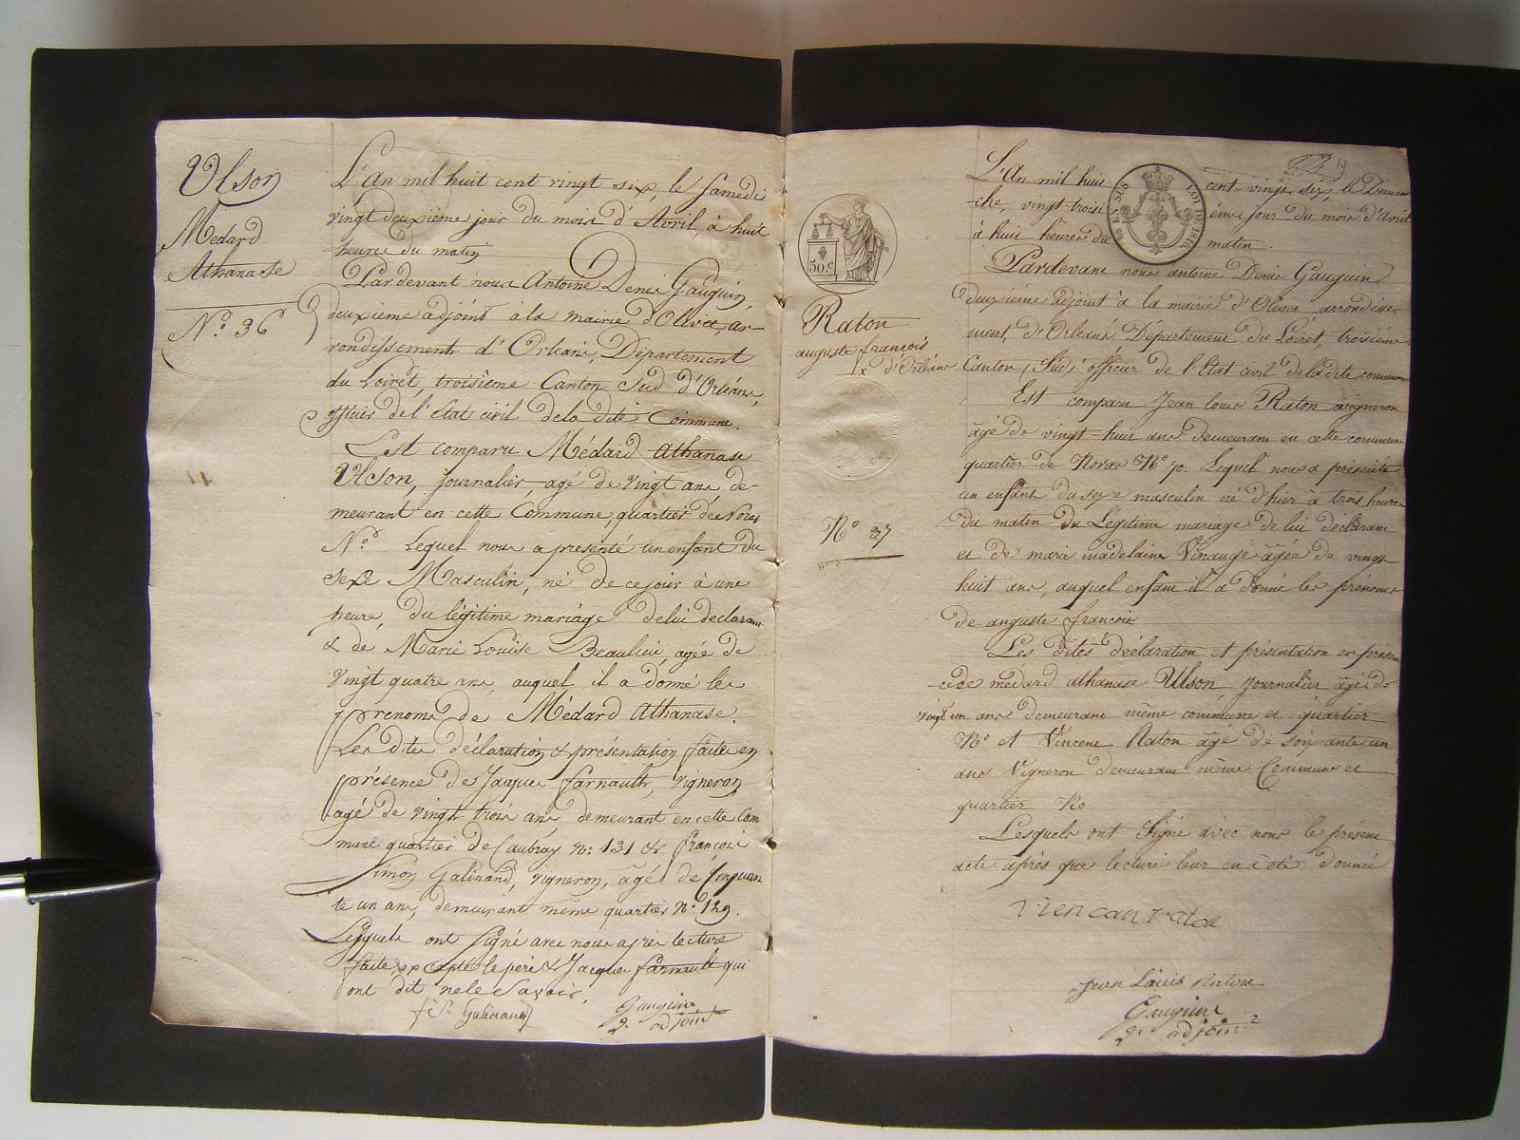 Ulson
Médard
Athanase
No. 36
L'An mil huit cent vingt six, le Samedi
vingt deuxième jour du mois d'Avril à huit
heures du matin
Pardevant nous Antoine Denis Gauguin,
deuxième adjoint à la mairie d'Olivet, ar-
rondissement d'Orléans, Département
du Loiret, troisième Canton Sud d'Orléans,
officier de l'Etat civil de la dite Commune.
Est comparu Médard Athanase
Ulson, journalier agé de vingt ans de-
meurant en cette Commune, quartier des
No. Lequel nous a presenté un enfant du
sexe Masculin, né de ce jour à une
heure, du légitime mariage de lui declarant
& de Marie Louise Beaulieu, agée de
vingt quatre ans, auquel il a donné les
prenoms de Médard Athanase.
Les dites déclaration & présentation faite en
présence de Jacques farnault, vigneron,
agé de vingt trois ans demeurant en cette Com
mune quartier de Caubray No: 131 & françois
Simon Galinand, vigneron, agé de Cinquan
te un ans, demeurant même quartier No: 129.
Lesquels ont signé avec nous après lecture
faite excepté le père & Jacques farnault qui
ont dit ne le Savoir.
f. S. Galinand
Gauguin
2. adjoint
50. c
Raton
auguste françois
No 37
L'An mil huit cent vingt six, le Diman
-che, vingt-troisième jour du mois d'Avril
à huit heures du matin.
EN SUS
LOI DE 1816
Pardevant nous antoine Denis Gauguin
deuxième adjoint à la mairie d'Olivet arrondisse-
ment, d'Orléans, Département du Loiret, troisième
Canton (Sud) officier de l'Etat civil de la dite commune
Est comparu Jean louis Raton vigneron
âgé de vingt-huit ans demeurant en cette commune
quartier de No Lequel nous a présenté
un enfant du sexe masculin né d'hier à trois heures
du matin du Légitime mariage de lui déclarant
et de marie madelaine âgée de vingt
huit ans, auquel enfant il a donné les prénoms
de auguste françois
Les dites déclaration et présentation en présen
-ce de médard athanase Ulson journalier âgé de
vingt un ans demeurant même commune et quartier
No et Vincent Raton âgé de soixante un
ans Vigneron demeurant même Commune et
quartier No
Lesquels ont Signé avec nous le présent
acte après que lecture leur en a été donnée
Jean Louis Raton
Gauguin
2. adjoint